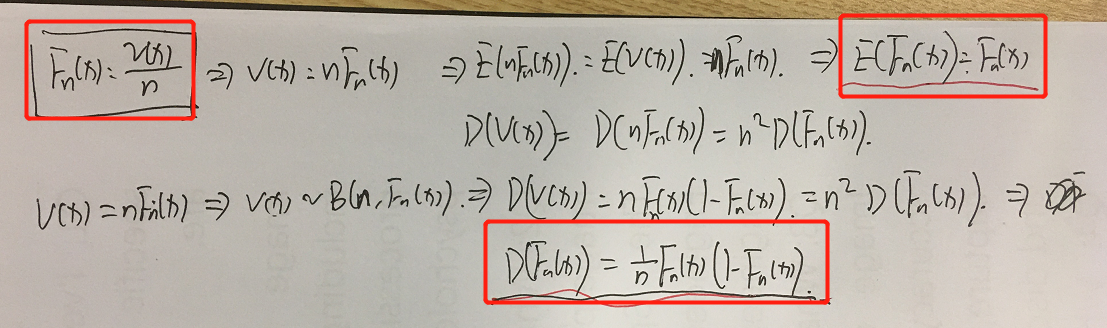 Fn(x) = V(x)/n ⇒ V(x) = nFn(x) ⇒ E(nFn(x)). = E(V(x)). = nFn(x). ⇒ E(Fn(x)) = Fn(x)
D(V(x)) = D(nFn(x)) = n²D(Fn(x)).
V(x) = nFn(x) ⇒ V(x) ~ B(n, Fn(x)). ⇒ D(V(x)) = nFn(x)(1-Fn(x)). = n² D(Fn(x)). ⇒
D(Fn(x)) = 1/n Fn(x)(1-Fn(x)).